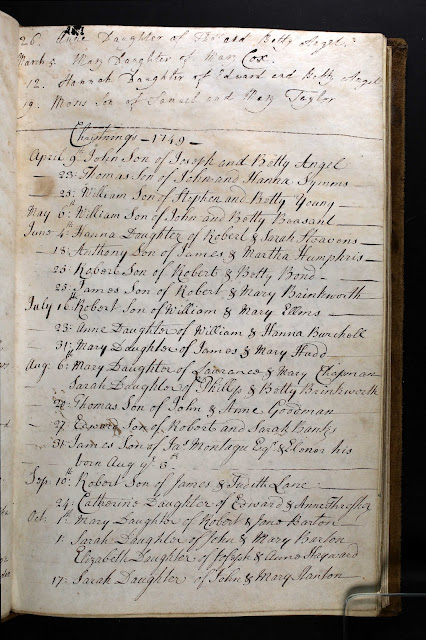 26. Anne Daughter of and Betty Angel
March 5. Mary Daughter of Mary Cox
12. Hannah Daughter of Edward and Betty Angel
19. Moses Son of Samuel and Mary Taylor
Christnings - 1749 -
April 9. John Son of Joseph and Betty Angel
23. Thomas Son of John and Hanna Symms
25. William Son of Stephen and Betty Young
May 6th William Son of John and Betty Beasant
June 4th Hanna Daughter of Robert & Sarah Heavens
18. Anthony Son of James & Martha Humphris
25. Robert Son of Robert & Betty Bond
25. James Son of Robert & Mary Brinkworth
July 16. Robert Son of William & Mary Ellms
23. Anne Daughter of William & Hanna Burchell
31. Mary Daughter of James & Mary
Aug. 6th Mary Daughter of Lawrance & Mary Chapman
Sarah Daughter of Phillip & Betty Brinkworth
Thomas Son of John & Anne Goodman
27. Edward Son of Robert and Sarah Banks
31. James Son of Jas. Montague Esqr. & Elenor his
born Aug ye. 3d
Sep. 10th Robert Son of James & Judith Lane
24. Catherine Daughter of Edward & Anne Thresher
Oct. 1st Mary Daughter of Robert & Jane Barton
1. Sarah Daughter of John & Mary Barton
Elizabeth Daughter of Joseph & Anne
17. Sarah Daughter of John & Mary Tanton